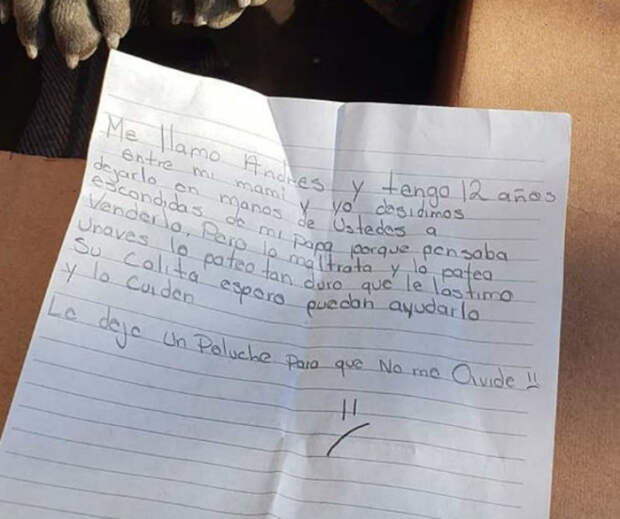 Me llamo Andres y tengo 12 años
entre mi mami y yo desidimos
dejarlo en manos de Ustedes a
escondidas de mi Papa porque pensaba
Venderlo, Pero lo maltrata y lo patea
Unaves lo pateo tan duro que le lastimo
Su Colita espero puedan ayudarlo
y lo Cuiden
Le deje Un Peluche Para que No me Olvide !!